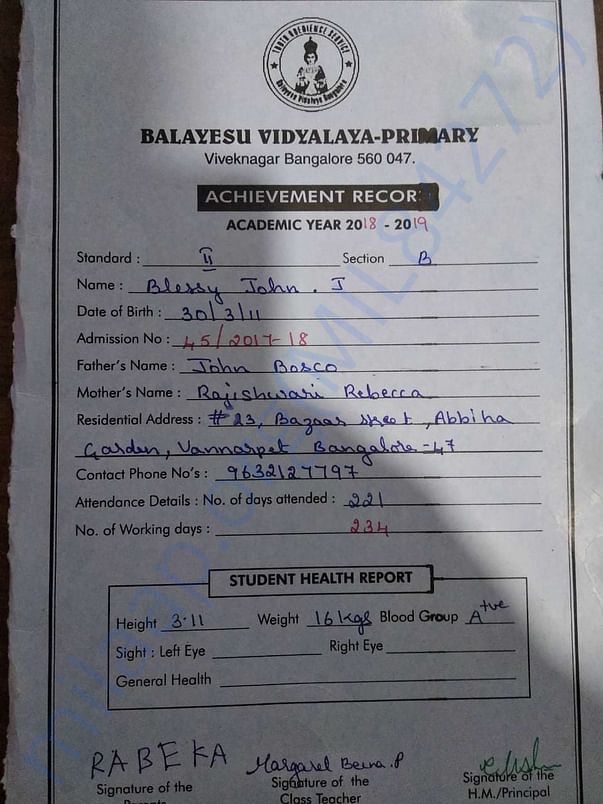 YOUTH OBEDIENCE SERVICE
Balayesu Vidyalaya Bangalore
BALAYESU VIDYALAYA-PRIMARY
Viveknagar Bangalore 560 047.
ACHIEVEMENT RECOR
ACADEMIC YEAR 2018 - 2019
Standard : II Section B
Name : Blessy John . J
Date of Birth : 30/3/11
Admission No : 45/2017-18
Father's Name : John Bosco
Mother's Name : Rajishwari Rebecca
Residential Address : #23, Bazaar street, Abbiha
Garden, Vannarpet Bangalore-47
Contact Phone No's : 9632127797
Attendance Details : No. of days attended : 221
No. of Working days : 234
STUDENT HEALTH REPORT
Height 3.11 Weight 16 kgs Blood Group A+ve
Sight : Left Eye Right Eye
General Health
RABEKA Margaret Beena .P
Signature of the Signature of the Signature of the
Parents Class Teacher H.M./Principal
milaap.org